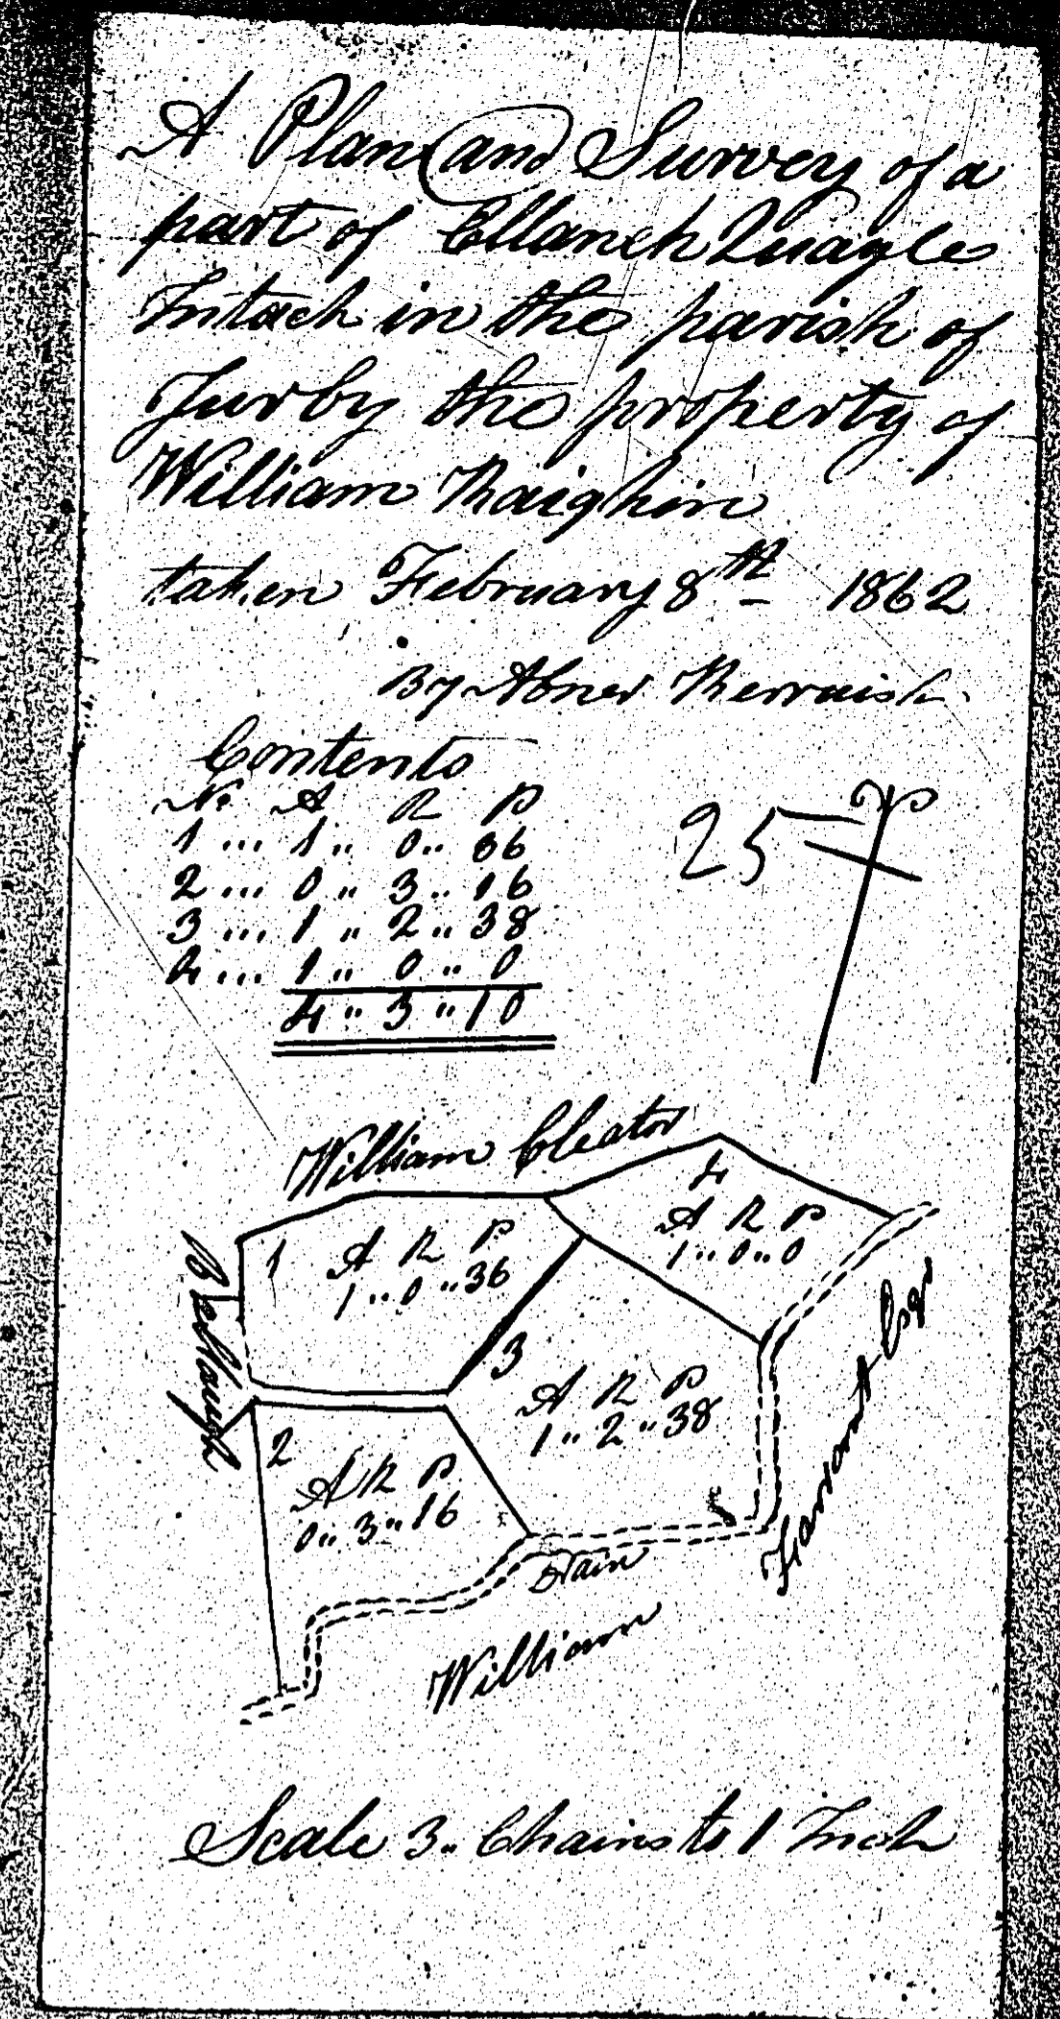 A Plan and Survey of a
part of Ellaneh Quagle
Intack in the parish of
Jurby the property of
William Kaighin
taken February 8th 1862
By Abner Kerruish
Contents
No A R P
1 ... 1 " 0 " 36
2 ... 0 " 3 " 16
3 ... 1 " 2 " 38
4 ... 1 " 0 " 0
4 " 3 " 10
25
William Cleator
4
A R P
1 " 0 " 0
1
A R P
1 " 0 " 36
3
A R P
1 " 2 " 38
2
A R P
0 " 3 " 16
Drain
William
Farrant Esqr
Scale 3 " Chains to 1 Inch